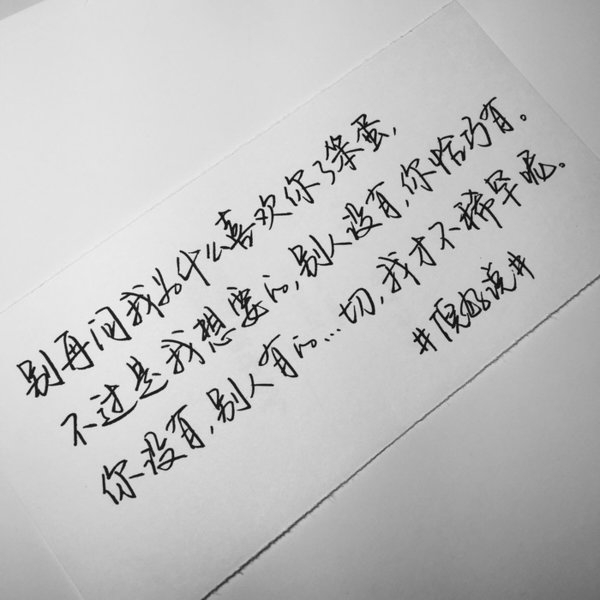 别再问我为什么喜欢你了笨蛋,
不过是我想要的,别人没有,你恰巧有。
你没有,别人有的…一切,我才不稀罕呢。